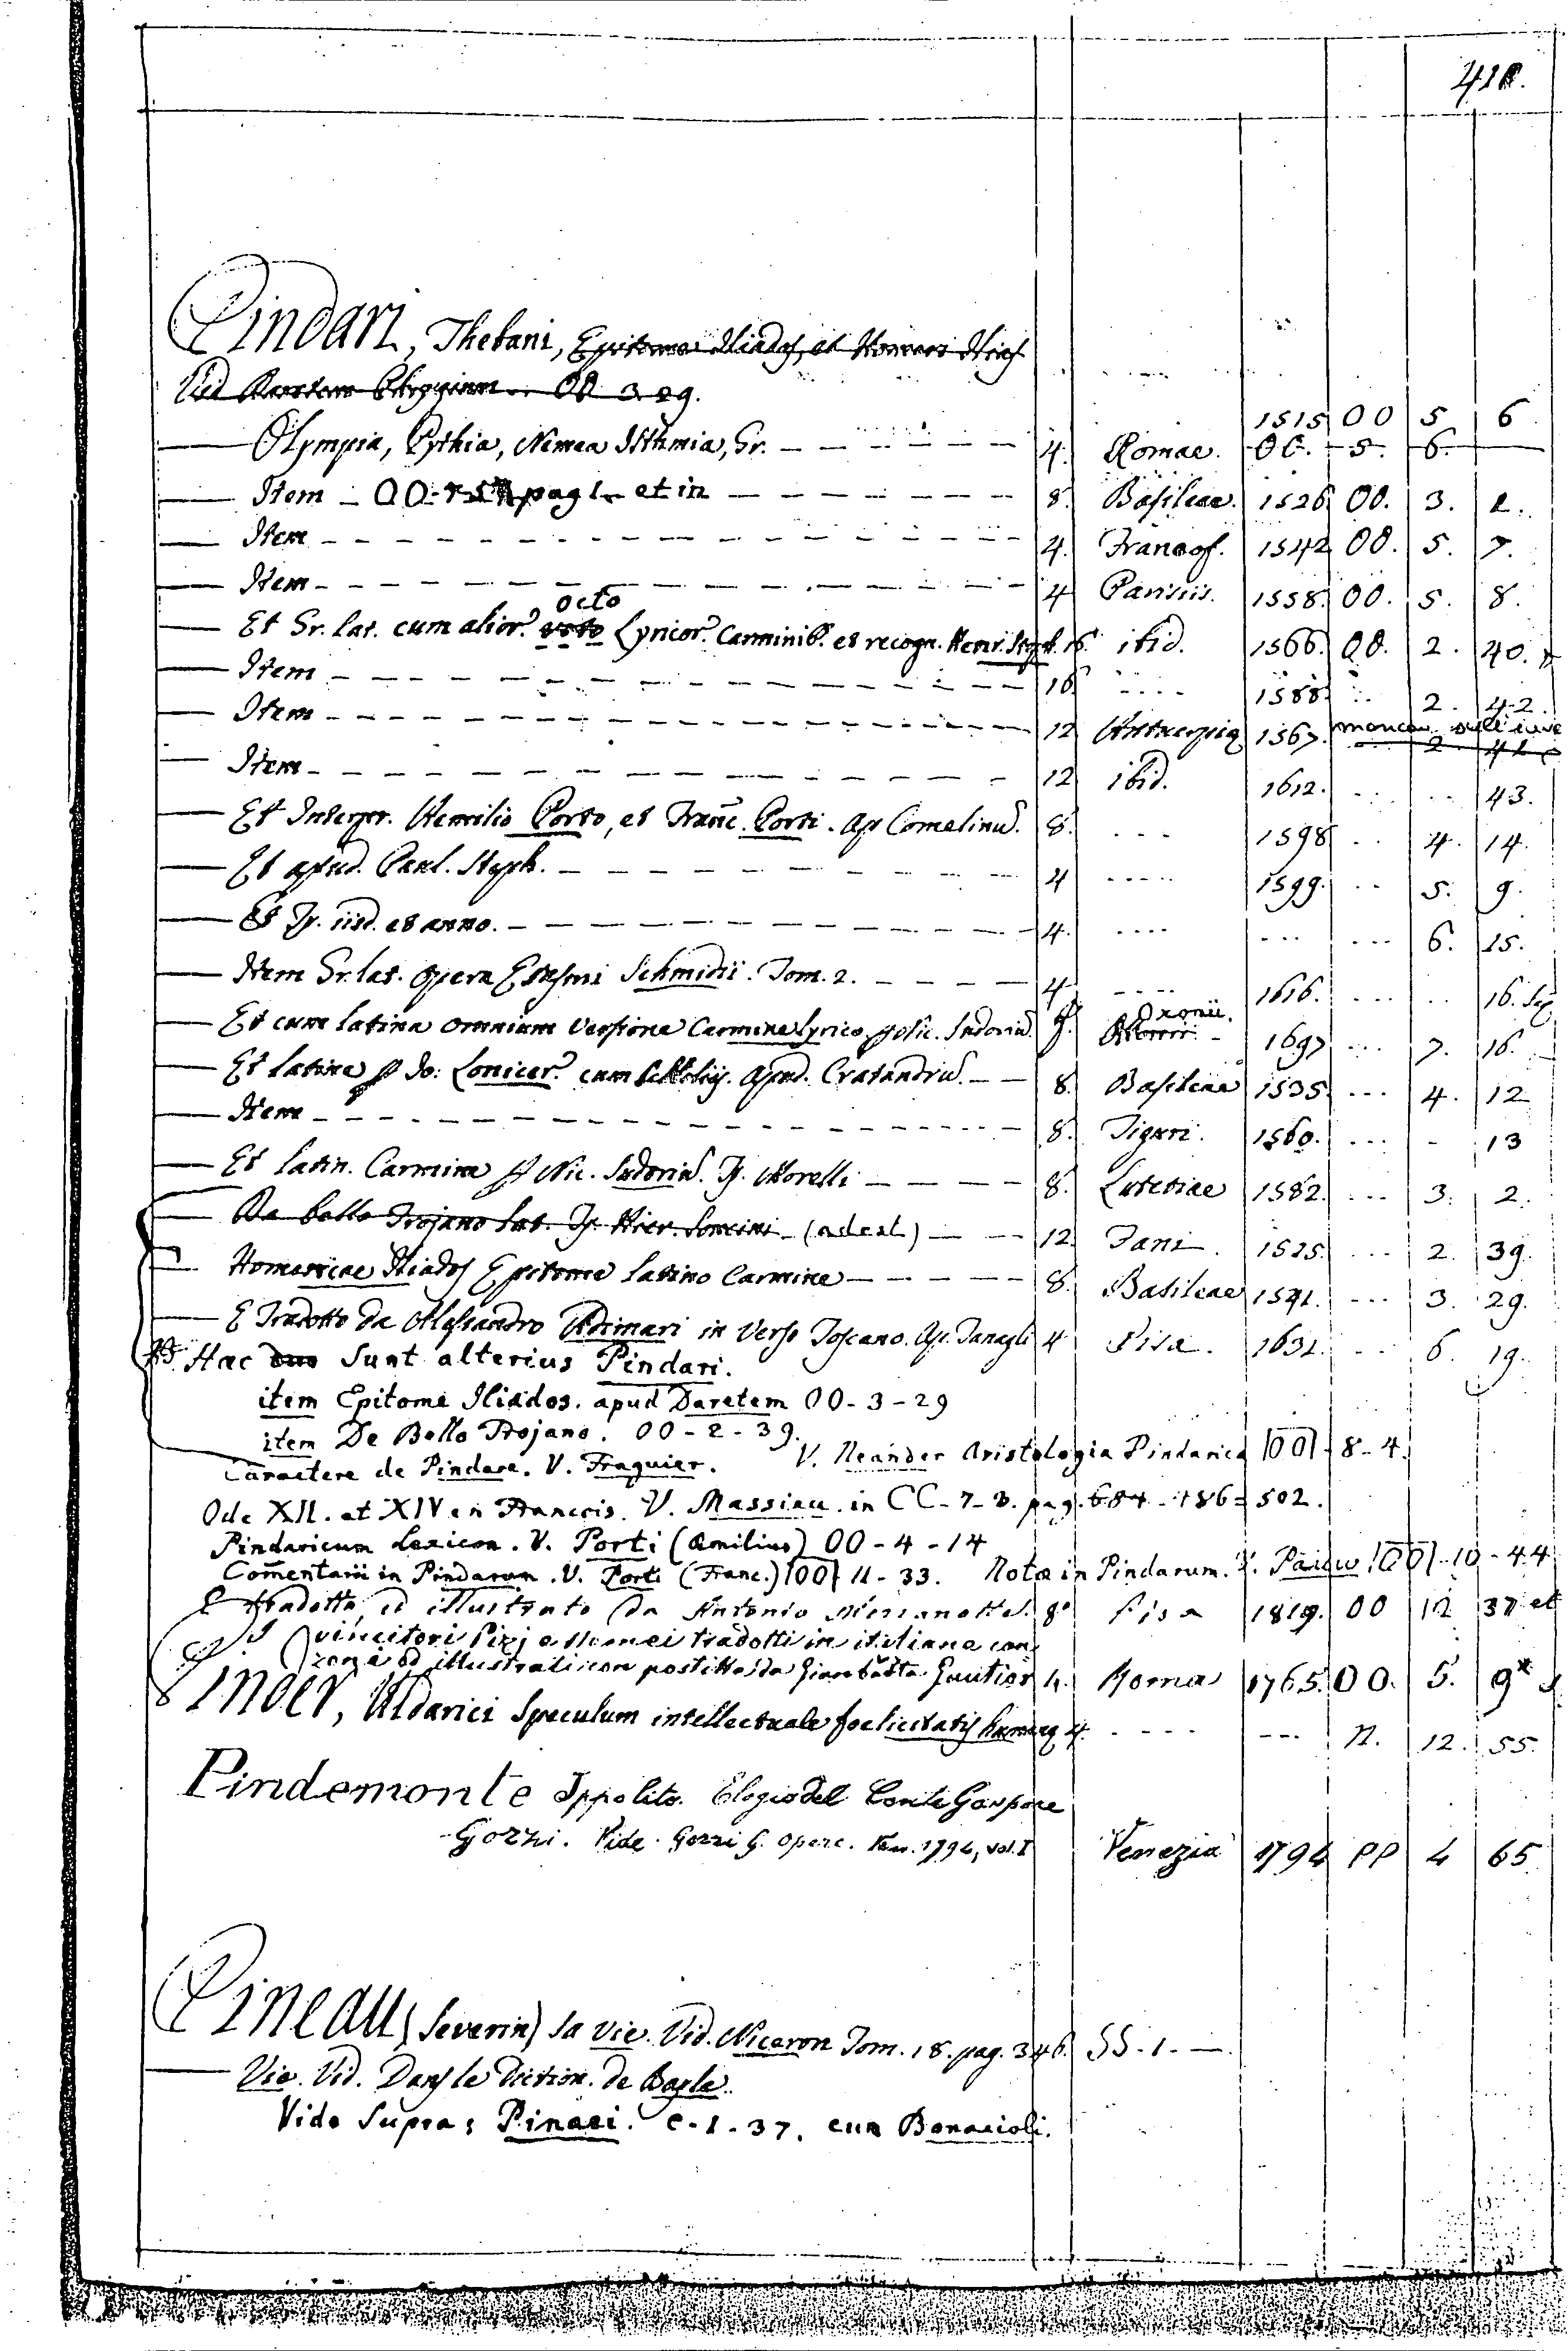 418.
Pindari, Thebani, Epitome Iliados, et Homeri
Vid Daretem Phrygium. OO 3 29.
— Olympia, Pythia, Nemea Isthmia, Gr. — 4. Romae. 1515 OO 5. 6 OO. 5. 6.
— Item — OO- et in — 8. Basileae. 1526 OO. 3. 1.
— Item — 4. Francof. 1542 OO. 5. 7.
— Item — 4 Parisiis. 1558. OO. 5. 8.
octo
— Et Gr. lat. cum alior. Lyricor. Carminib. et recogn. Henr. Steph. 16. ibid. 1566. OO. 2. 40.
— Item — 16 .... 1588. .. 2. 42.
— Item — 12 Antuerpia 1567. manca
— Item — 12 ibid. 1612. ... .. 43.
— Et Interpr. Aemilio Porto, et Franc. Porti. Ap Comelinu. 8. ... 1598 .. 4. 14.
— Et apud. Paul. Steph. — 4 .... 1599. .. 5. 9.
— Et Ty. iisd. et anno. — 4. .... ... ... 6. 15.
— Item Gr. lat. opera Erasmi Schmidii. Tom. 2. — 4 .... 1616. ... .. 16.
Oxonii.
— Et cum latina omnium versione Carmine Lyrico, p Nic. Sudoriu. f. 1697 ... 7. 16.
— Et latine p Jo: Lonicer. cum Scholijs. Apud. Cratandru. — 8. Basileae 1535. ... 4. 12
— Item — 8. Tiguri. 1560. ... - 13
— Et latin. Carmine p Nic. Sudoriu. Ty. Morelli — 8. Lutetiae 1582. ... 3. 2.
— De bello Trojano lat. Ty. Hier. Soncini — (adest) — 12. Fani. 1515. ... 2. 39.
— Homericae Iliados Epitome latino Carmine — 8. Basileae 1541. ... 3. 29.
— E Tradotto da Alessandro Adimari in Verso Toscano. Ap. Tanagli 4 Pisa. 1631. ... 6. 19.
Haec duo Sunt alterius Pindari.
item Epitome Iliados. apud Daretem OO-3-29
item De Bello Trojano. OO-2-39.
Caractere de Pindare. V. Fraguier. V. Neander Aristologia Pindarica |OO| 8-4.
Ode XII. et XIV en Francois. V. Massieu. in CC-7-3. pag. 684-486=502.
Pindaricum Lexicon. V. Porti (Æmilius) OO-4-14
Comentarii in Pindarum. V. Porti (Franc.) |OO| 11-33. Notæ in Pindarum. V. |OO|-10-44
E tradotto, ed illustrato da Antonio Mezzanotte. 8° Pisa 1819. OO 12 37 et
I vincitori Pizj e Nemei tradotti in italiane can
zoni ed illustrati con postille da Giambatta Gautier 4. Roma 1765. OO. 5. 9*
Pinder, Uldarici Speculum intellectuale foelicitatis humanæ 4. .... ... n. 12. 55.
Pindemonte Ippolito. Elogio del Conte Gaspare
Gozzi. Vide Gozzi G. Opere. Ven. 1794, vol. I Venezia 1794 PP 4 65
Pineau (Severin) sa vie. Vid. Niceron Tom. 18. pag. 346. SS-1-—
— Vie. Vid. Dans le Diction. de Bayle.
Vide Supra: Pinaei. C-1-37. cum Bonacioli.